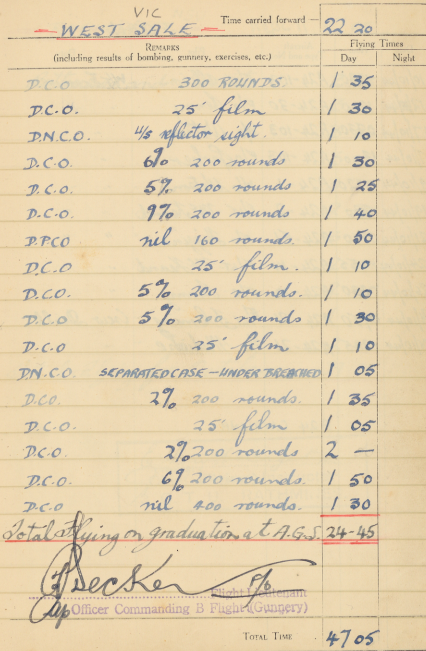 VIC
WEST SALE Time carried forward — 22 20
REMARKS Flying Times
(including results of bombing, gunnery, exercises, etc.) Day Night
D.C.O 300 ROUNDS. 1 35
D.C.O. 25' film 1 30
D.N.C.O. U/S reflector sight. 1 10
D.C.O 6% 200 rounds 1 30
D.C.O. 5% 200 rounds 1 25
D.C.O 9% 200 rounds 1 40
D.P.C.O nil 160 rounds. 1 50
D.C.O 25' film. 1 10
D.C.O. 5% 200 rounds. 1 10
D.C.O 5% 200 rounds 1 30
D.C.O 25' film 1 10
D.N.C.O. SEPARATED CASE — UNDER BREACHED 1 05
D.C.O. 2% 200 rounds. 1 35
D.C.O. 25' film 1 05
D.C.O 2% 200 rounds. 2 —
D.C.O. 6% 200 rounds. 1 50
D.C.O nil 400 rounds. 1 30
Total Flying on graduation at A.G.S. 24-45
Decker F/O
Flight Lieutenant
Officer Commanding B Flight (Gunnery)
TOTAL TIME 47 05